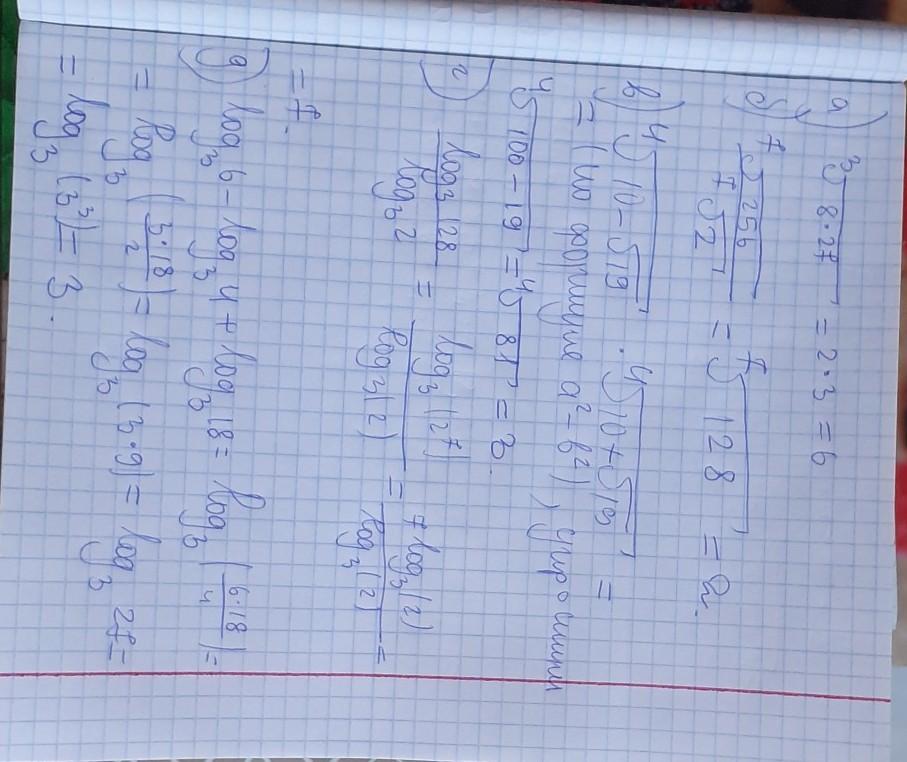 а) ³√8·27 = 2·3 = 6
б) ⁷√256 / ⁷√2 = ⁷√128 = 2.
в) ⁴√10-√19 · ⁴√10+√19 =
= (по формуле a²-b²), упростим
⁴√100-19 = ⁴√81 = 3.
г) log₃128 / log₃2 = log₃(2⁷) / log₃(2) = 7log₃(2) / log₃(2) =
= 7.
д) log₃6 - log₃4 + log₃18 = log₃(6·18 / 4) =
= log₃(3·18 / 2) = log₃(3·9) = log₃ 27 =
= log₃(3³) = 3.